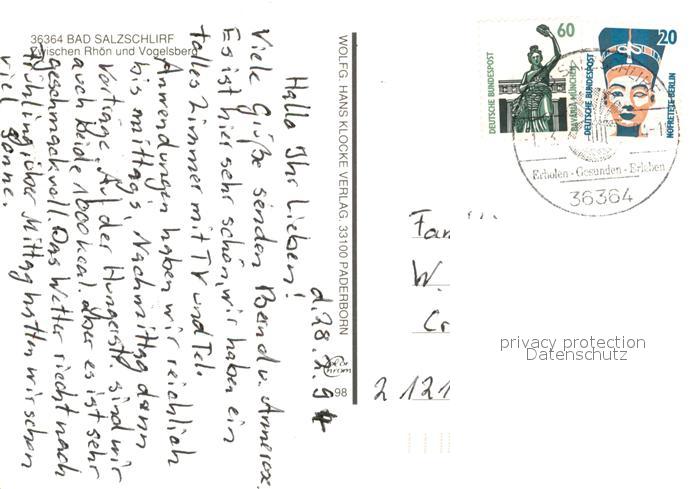 36364 BAD SALZSCHLIRF
Zwischen Rhön und Vogelsberg
d. 28.2.94
Hallo Ihr Lieben!
Viele Grüße senden Bernd u. Annerose.
Es ist hier sehr schön, wir haben ein
tolles Zimmer mit TV und Tel.
Anwendungen haben wir reichlich
bis mittags, Nachmittag dann
Vorträge. Auf der Hungerst. sind wir
auch beide 1000 kcal. aber es ist sehr
geschmackvoll. Das Wetter riecht nach
Frühling, über Mittag hatten wir schon
viel Sonne.
WOLFG. HANS KLOCKE VERLAG, 33100 PADERBORN
98
60
DEUTSCHE BUNDESPOST
BAVARIA MÜNCHEN
20
DEUTSCHE BUNDESPOST
NOFRETETE BERLIN
Erholen - Gesunden - Erleben
36364
Fam
W.
Cr
2121
privacy protection
Datenschutz